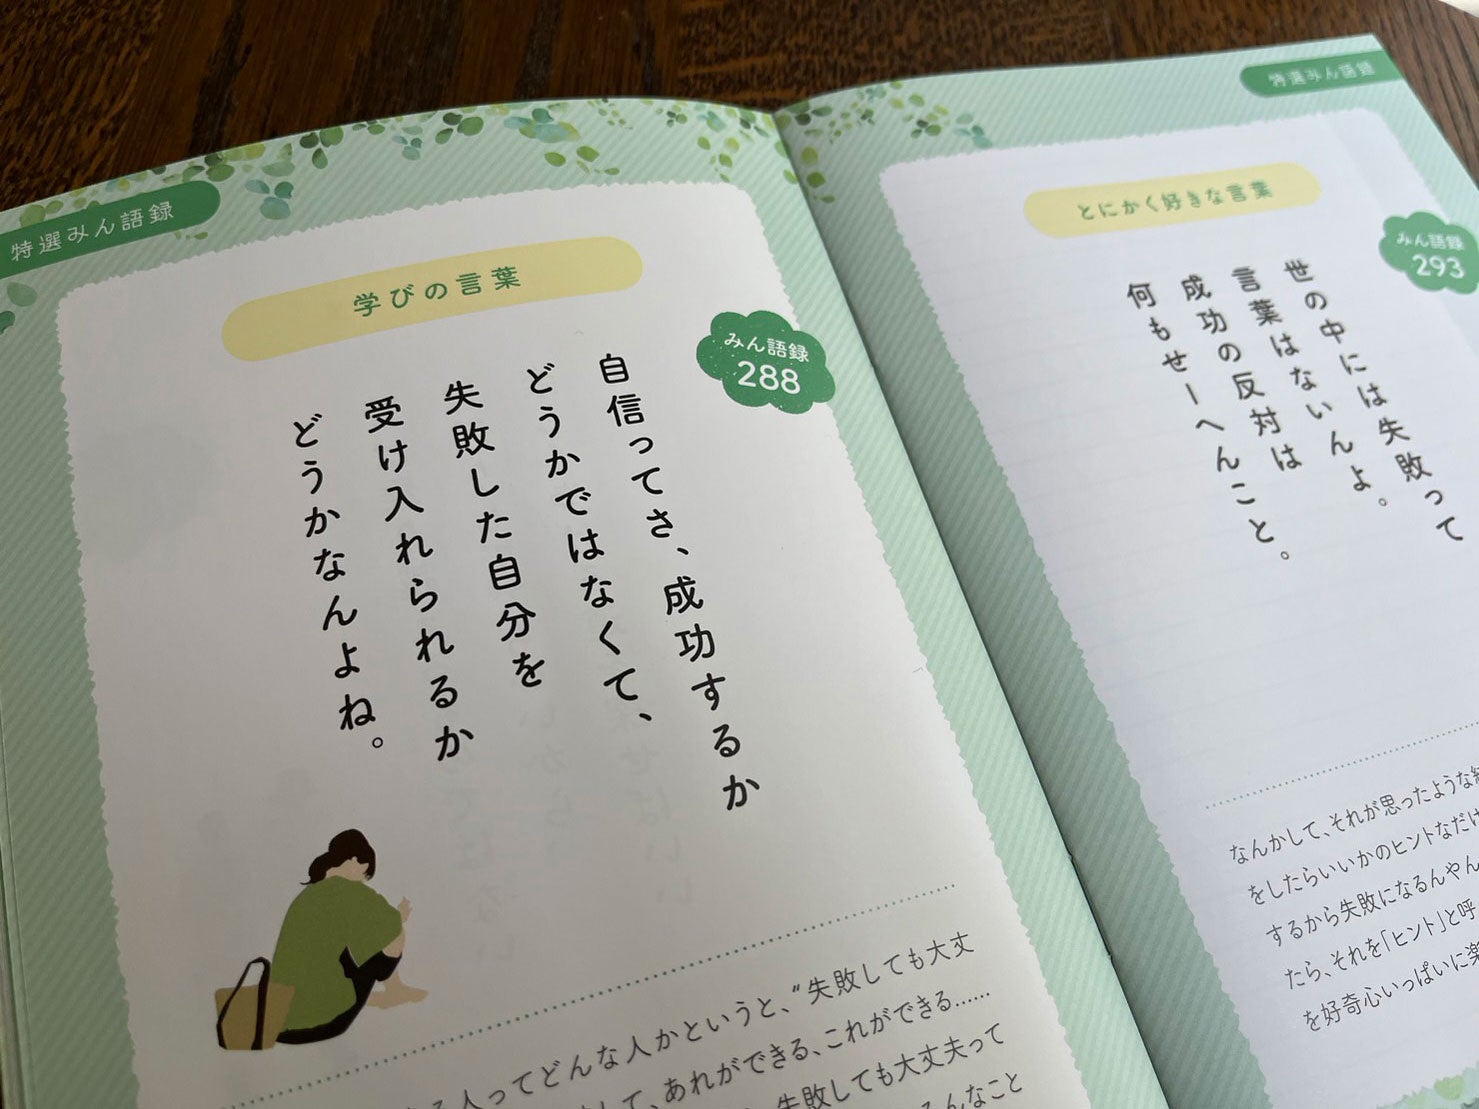 特選みん語録
学びの言葉
みん語録
288
自信ってさ、成功するか
どうかではなくて、
失敗した自分を
受け入れられるか
どうかなんよね。
人ってどんな人かというと、“失敗しても大丈
して、あれができる、これができる……
失敗しても大丈夫って
んなこと
特選みん語録
とにかく好きな言葉
みん語録
293
世の中には失敗って
言葉はないんよ。
成功の反対は
何もせーへんこと。
なんかして、それが思ったような
をしたらいいかのヒントなだけ
するから失敗になるんやん
たら、それを「ヒント」と呼
を好奇心いっぱいに楽